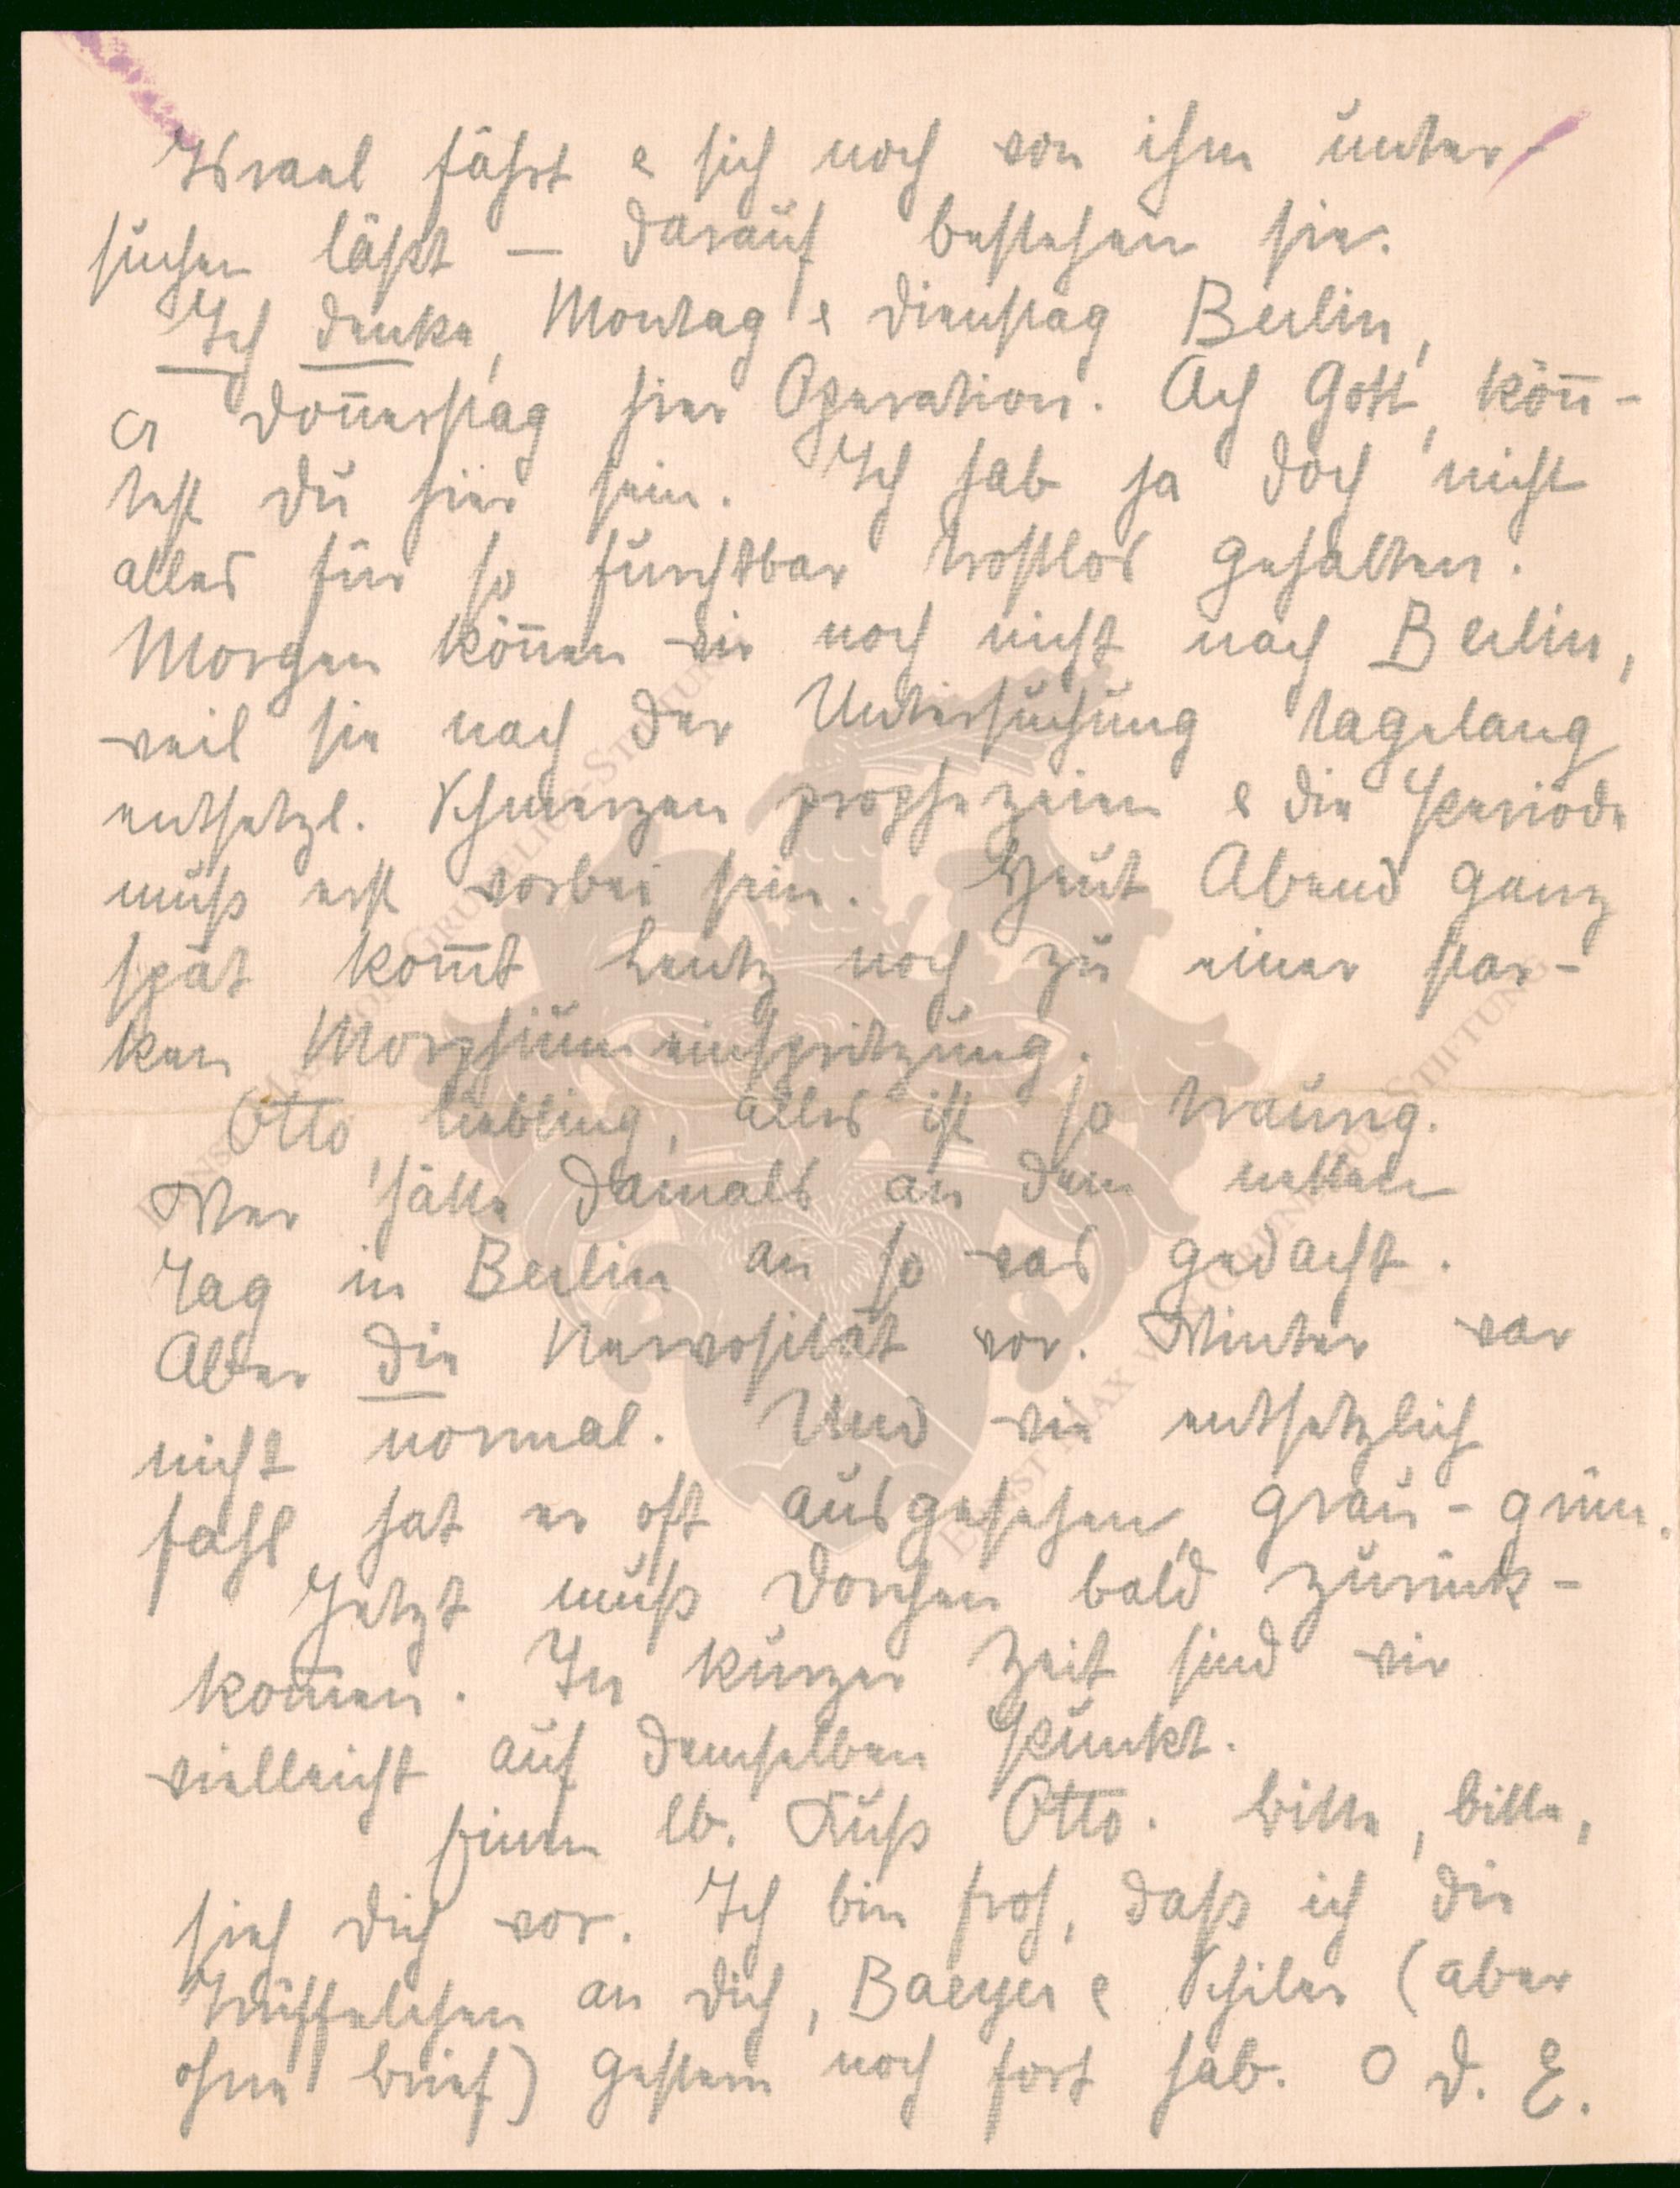 Israel fährt & sich noch von ihm unter-
suchen läßt – darauf bestehen sie.
Ich denke, Montag & Dienstag Berlin,
ca Donnerstag hier Operation. Ach Gott, könn-
test Du hier sein. Ich hab ja doch nicht
alles für so furchtbar trostlos gehalten.
Morgen können wir noch nicht nach Berlin,
weil sie nach der Untersuchung tagelang
entsetzl. Schmerzen prophezeien & die Periode
muß erst vorbei sein. Heut Abend ganz
spät kommt Lentz noch zu einer star-
ken Morphiumeinspritzung.
Otto, Liebling, alles ist so traurig.
Wer hätte damals an dem netten
Tag in Berlin an so was gedacht.
Aber die Nervosität vor. Winter war
nicht normal. Und wie entsetzlich
fahl hat er oft ausgesehen, grau-grün.
Jetzt muß Dorchen bald zurück-
kommen. In kurzer Zeit sind wir
vielleicht auf demselben Punkt.
Einen lb. Kuß Otto. Bitte, bitte,
sieh Dich vor. Ich bin froh, daß ich die
Trüffelchen an Dich, Baeyer & Schiler (aber
ohne Brief) gestern noch fort hab. O D. E.
ERNST MAX VON GRUNELIUS-STIFTUNG
ERNST MAX VON GRUNELIUS-STIFTUNG